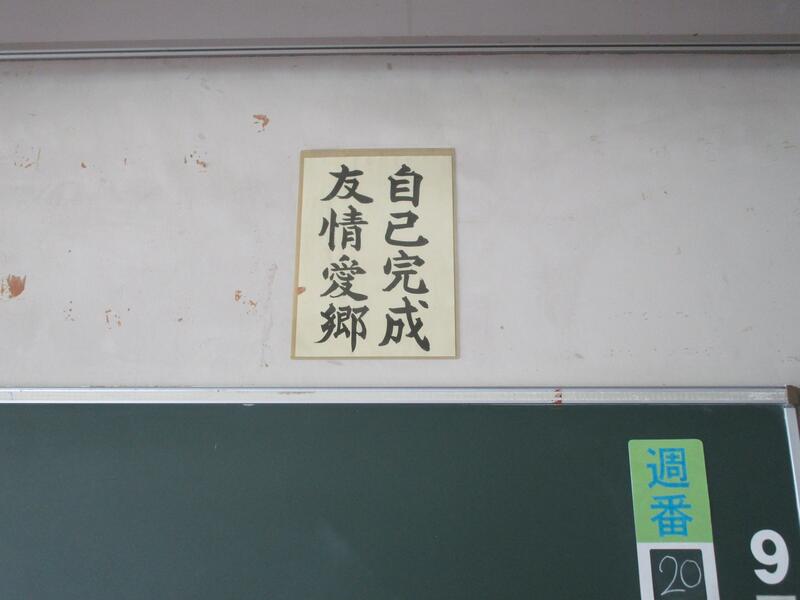 自己完成
友情愛郷
週番
20
9